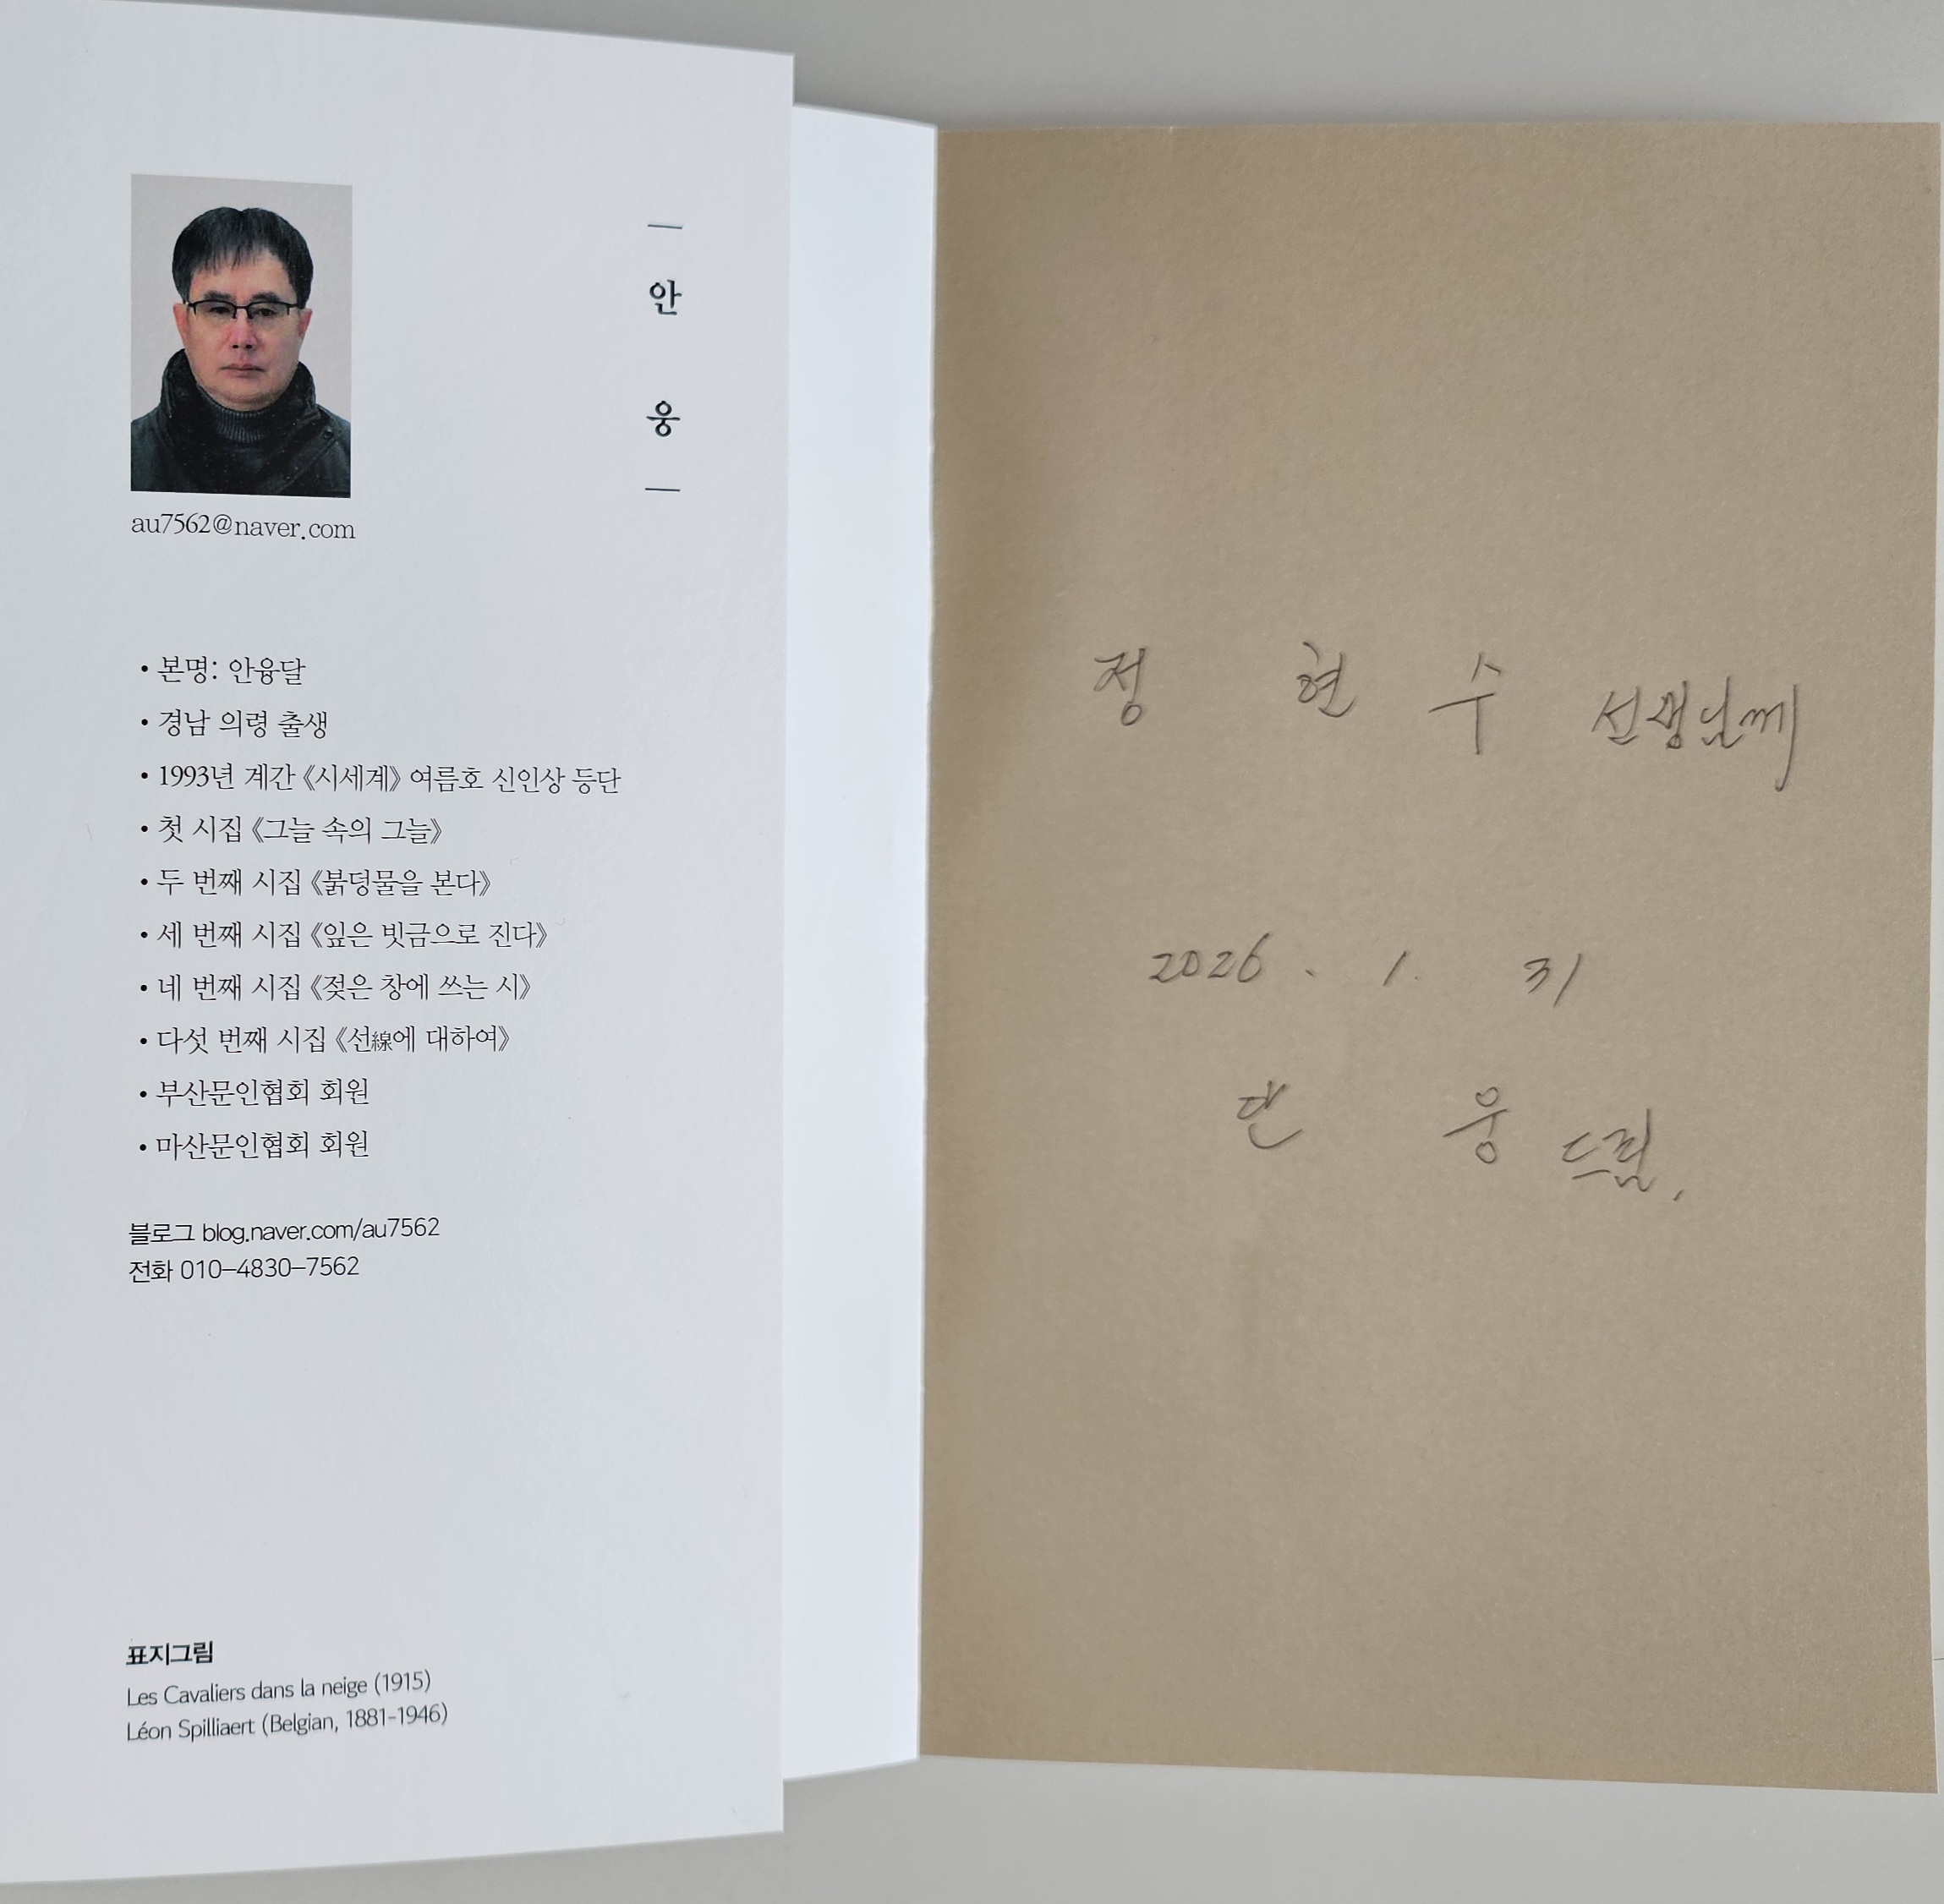 안 웅
au7562@naver.com
• 본명: 안융달
• 경남 의령 출생
• 1993년 계간 《시세계》 여름호 신인상 등단
• 첫 시집 《그늘 속의 그늘》
• 두 번째 시집 《붉덩물을 본다》
• 세 번째 시집 《잎은 빗금으로 진다》
• 네 번째 시집 《젖은 창에 쓰는 시》
• 다섯 번째 시집 《선線에 대하여》
• 부산문인협회 회원
• 마산문인협회 회원
블로그 blog.naver.com/au7562
전화 010–4830–7562
표지그림
Les Cavaliers dans la neige (1915)
Léon Spilliaert (Belgian, 1881-1946)
정 현 수 선생님께
2026. 1. 31
안 웅 드림.